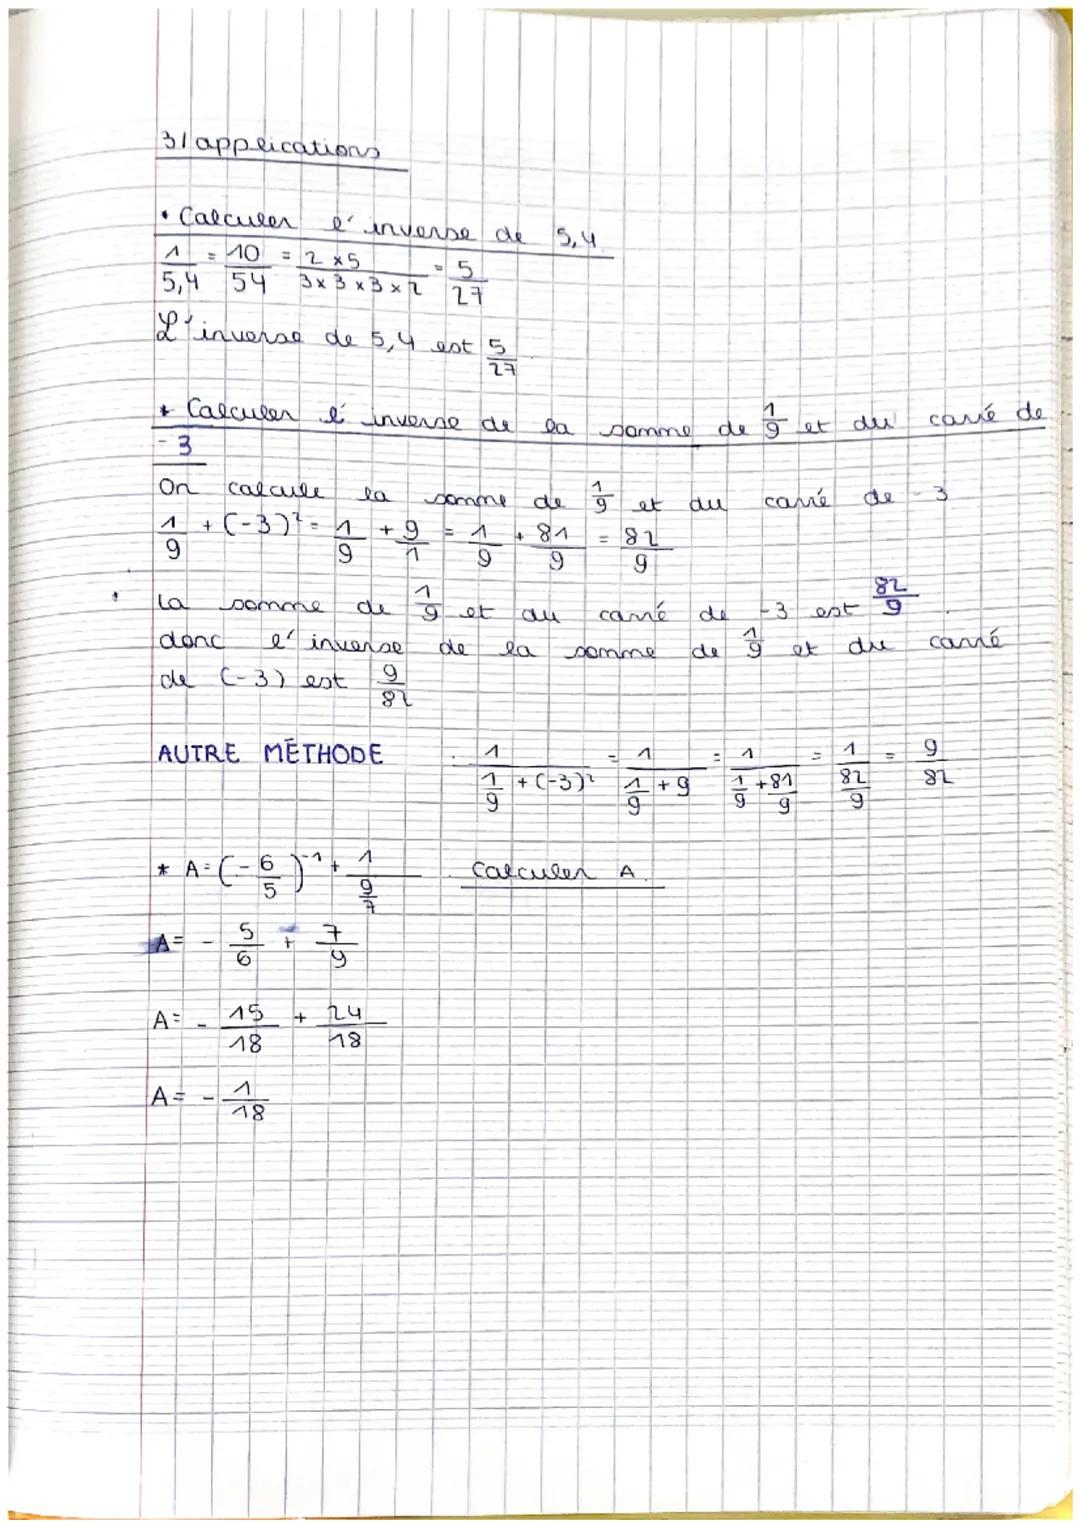 3/ applications
* Calculer l'inverse de 5,4.
1/5,4 = 10/54 = 2×5/3×3×3×2 = 5/27
L'inverse de 5,4 est 5/27.
* Calculer l'inverse de la somme de 1/9 et du carré de
-3
On calcule la somme de 1/9 et du carré de -3
1/9 + (-3)² = 1/9 + 9/1 = 1/9 + 81/9 = 82/9
La somme de 1/9 et du carré de -3 est 82/9.
donc l'inverse de la somme de 1/9 et du carré
de (-3) est 9/82
AUTRE MÉTHODE 1/(1/9 + (-3)²) = 1/(1/9 + 9) = 1/(1/9 + 81/9) = 1/(82/9) = 9/82
* A = (-6/5)⁻¹ + 1/(9/7) Calculer A.
A = - 5/6 + 7/9
A = - 15/18 + 24/18
A = - 1/18